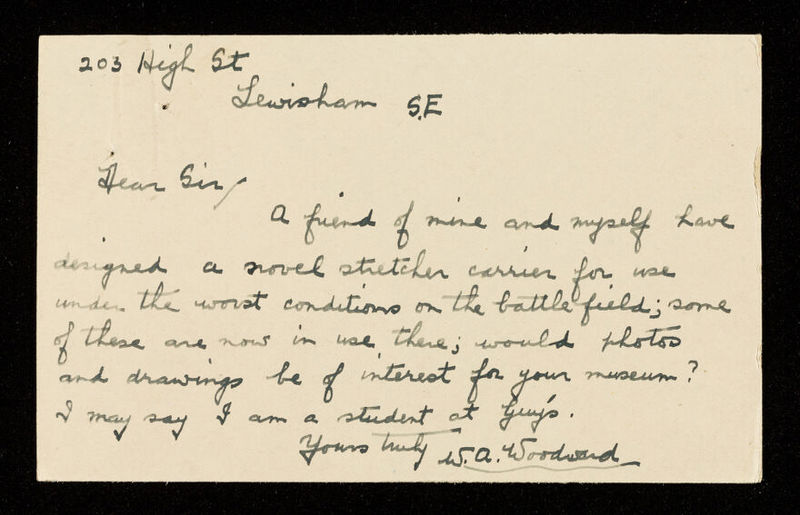 203 High St
Lewisham S.E
Dear Sir/
A friend of mine and myself have
designed a novel stretcher carrier for use
under the worst conditions on the battlefield; some
of these are now in use there; would photos
and drawings be of interest for your museum?
I may say I am a student at Guy's.
Yours truly W. A. Woodward